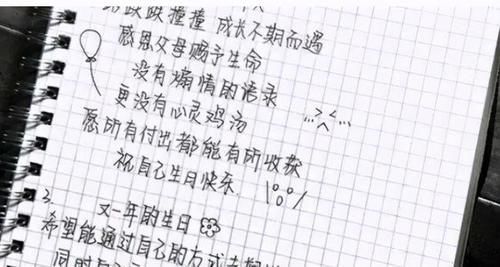 跌跌撞撞 成长不期而遇
感恩父母赐予生命
没有煽情的语录
更没有心灵鸡汤
愿所有付出都能有所收获
祝自己生日快乐
3.
又一年的生日
希望能通过自己的方式去
同时自己